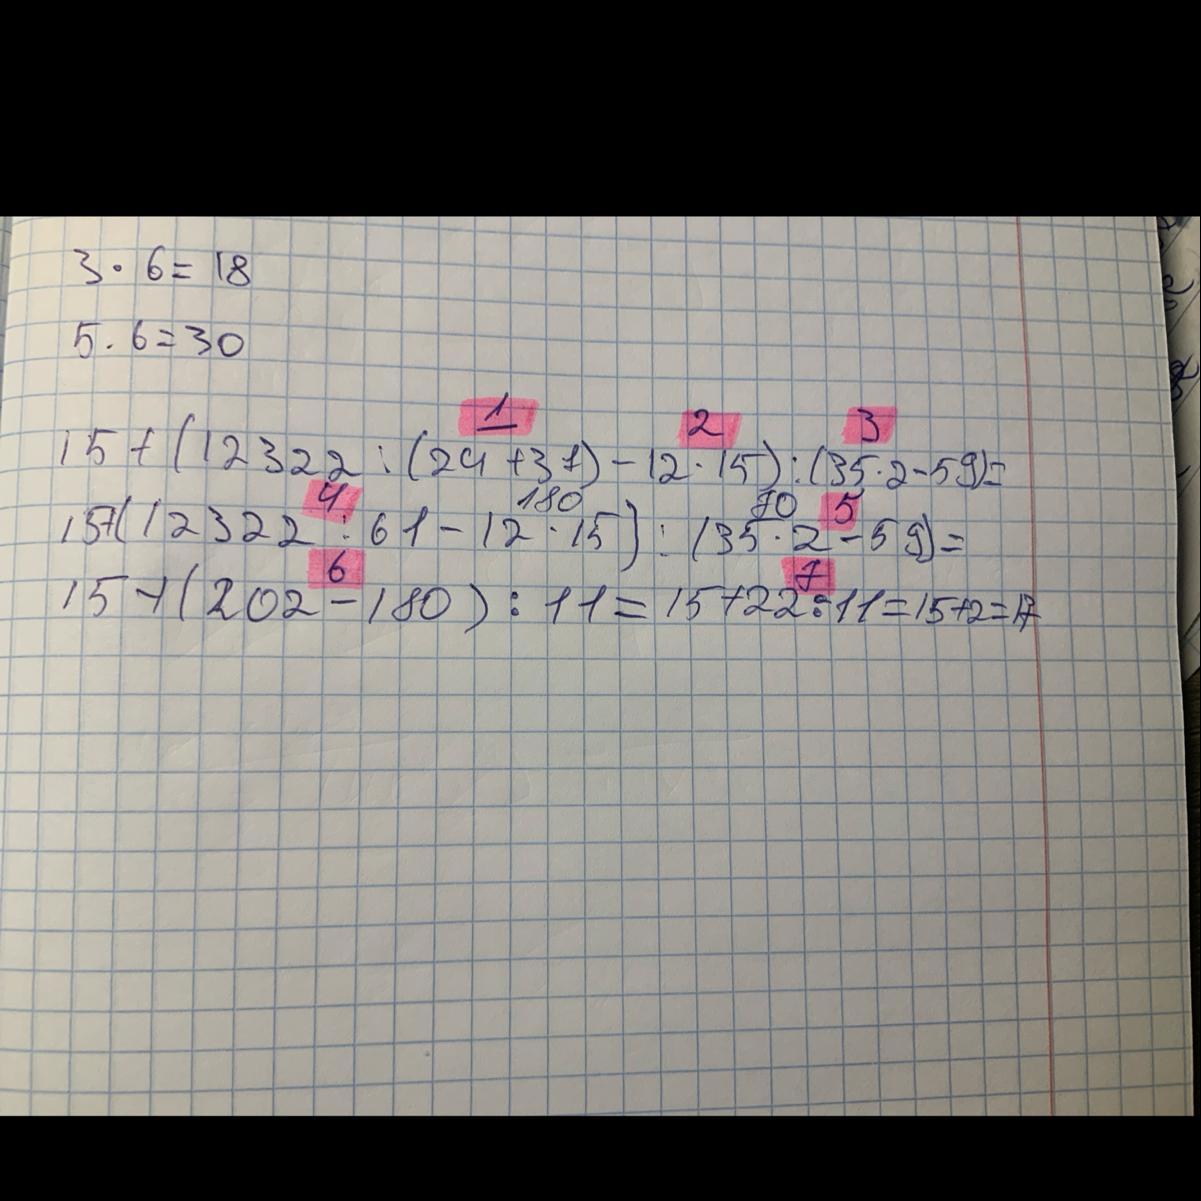 3 · 6 = 18
5 . 6 = 30
1 2 3
15 + (12322 : (24 + 37) - 12 · 15) : (35 · 2 - 59) =
4 180 70 5
15+(12322 : 61 - 12 · 15) : (35 · 2 - 59) =
6 7
15 + (202 - 180) : 11 = 15 + 22 : 11 = 15 + 2 = 17